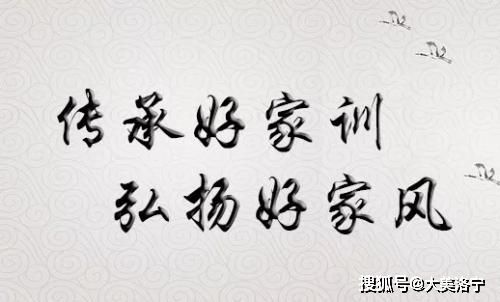 传承好家训
弘扬好家风
搜狐号@大美洛宁